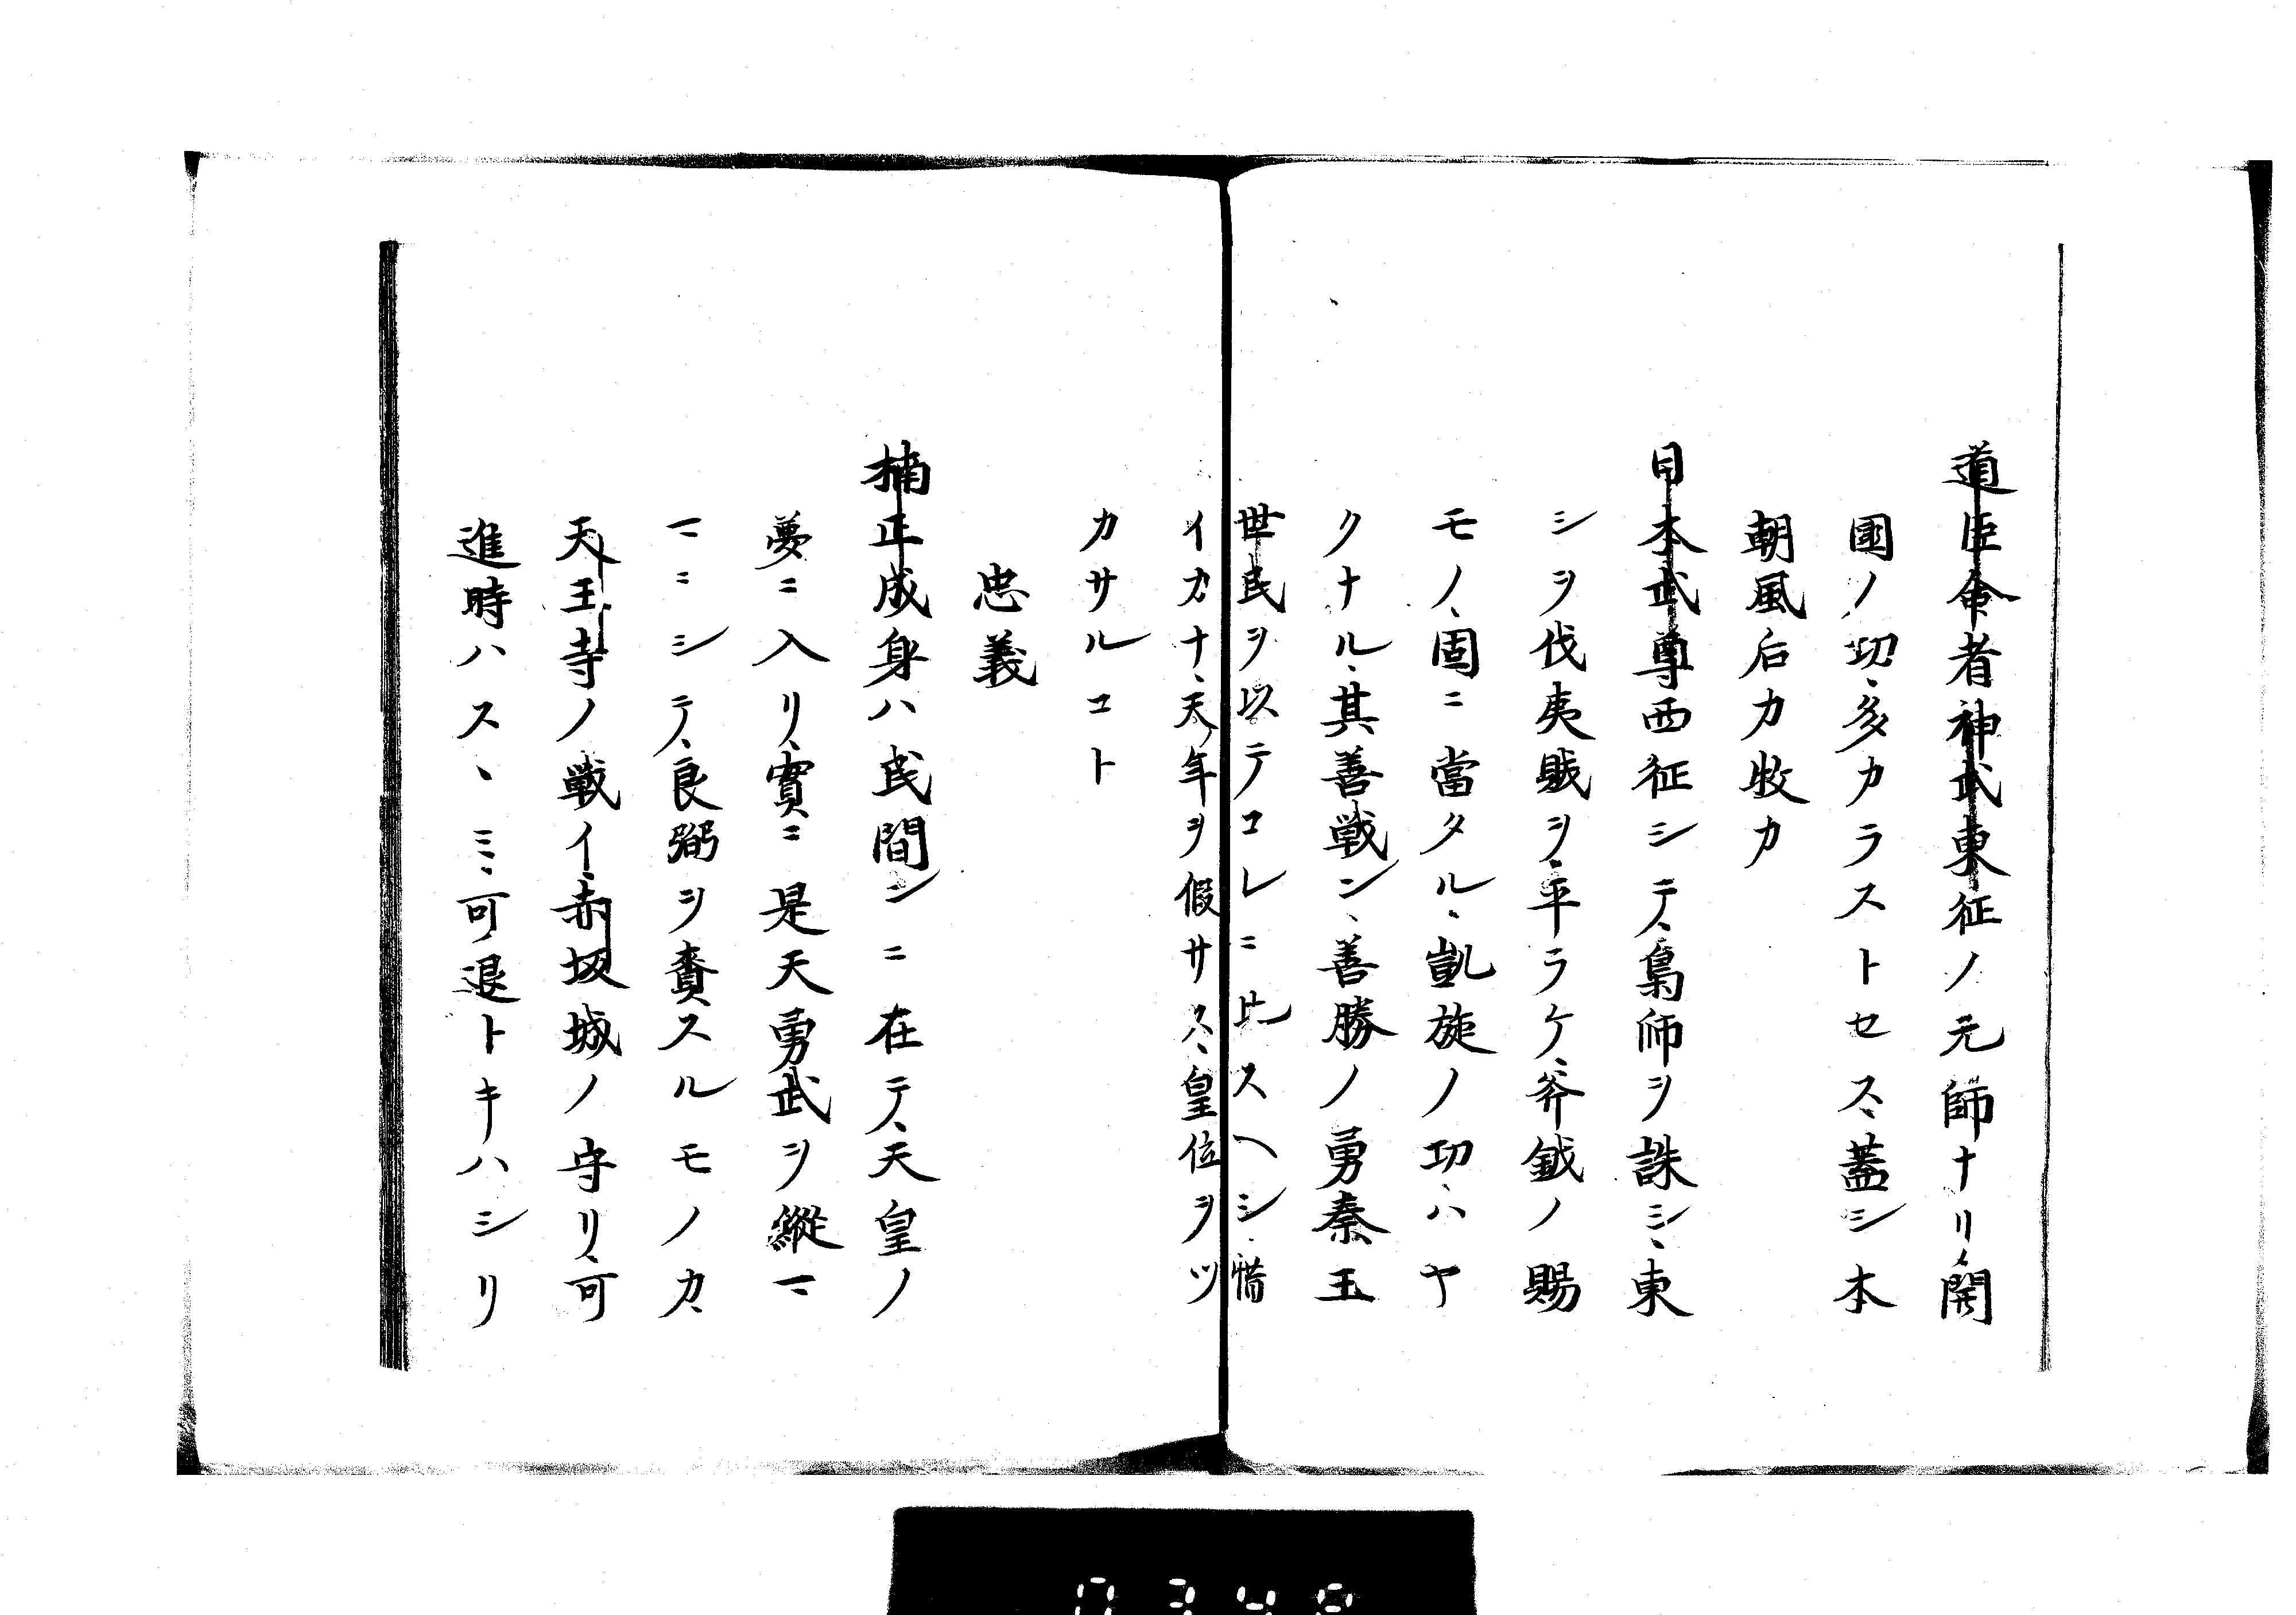 道臣命者神武東征ノ元師ナリ、開
國ノ功、多カラストセス、蓋シ本
朝風后カ牧カ
日本武尊西征シテ、梟師ヲ誅シ、東
シヲ伐夷賊ヲ、平ラケ、斧鉞ノ賜
モノ、固ニ當タル、凱旋ノ功、ハヤ
クナル、其善戦ン、善勝ノ勇秦王
世民ヲ以テコレニ比スヘシ、惜
イカナ、天年ヲ假サス、皇位ヲツ
カサルコト
忠義
楠正成身ハ民間ンニ在テ、天皇ノ
夢ニ入リ、實ニ是天勇武ヲ縱マ
マニシテ、良弼ヲ賚スルモノカ、
天王寺ノ戦イ、赤坂城ノ守リ、可
進時ハスヽミ、可退トキハシリ
0348